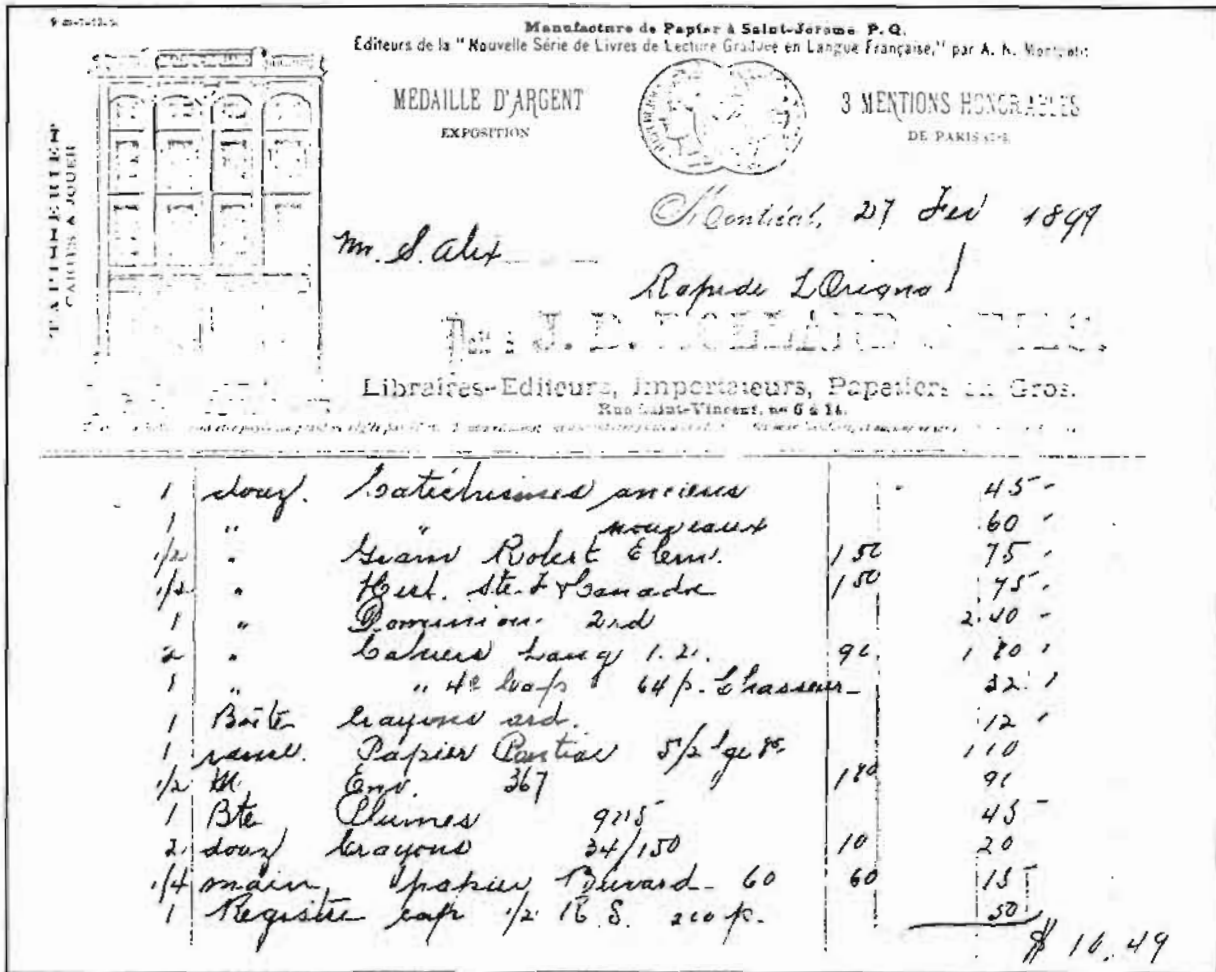 Manufacture de Papier à Saint-Jérome P. Q.
Editeurs de la " Nouvelle Série de Livres de Lecture Graduée en Langue Française," par A. N. Montpetit
MEDAILLE D'ARGENT
EXPOSITION
3 MENTIONS HONORABLES
DE PARIS
TAPISSERIES
CARTES A JOUER
Montréal, 27 Fev 1899
Mr. S. Alix
Rapide L'Orignal
Doit à J. B. ROLLAND & FILS.
Libraires-Editeurs, Importateurs, Papetiers en Gros.
Rue Saint-Vincent, nos 6 à 14.
1 douz. Catéchismes anciens 45
1 " " nouveaux 60
1/2 " Gram Robert Elem. 1 50 75
1/2 " Hist. Ste. & Canada 1 50 75
1 " Dominion 2nd 2.40
2 " Cahiers Lang 1.2. 90 1 80
1 " " 4e 64 p. Chasseur 32
1 Boîte Crayons ard. 12
1 rame Papier Pontiac 5/2 1 10
1/2 M Env. 367 1 80 90
1 Bte Plumes 9215 45
2 douz Crayons 34/150 10 20
1/4 main papier Buvard 60 60 15
1 Registre cap 1/2 R.S. 200 p. 50
$ 10.49